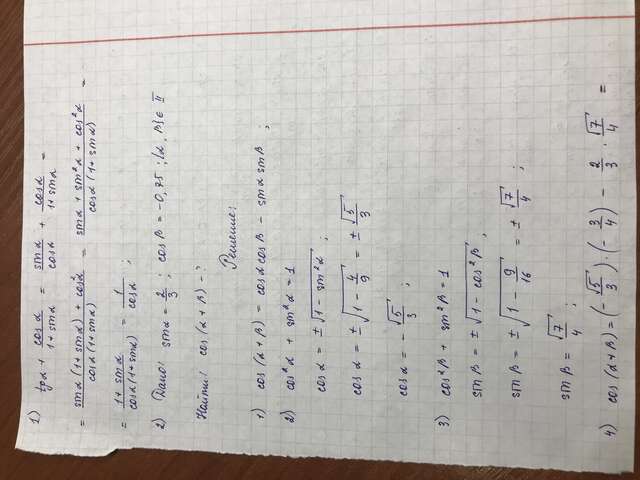 1) tgα + cosα/(1+sinα) = sinα/cosα + cosα/(1+sinα) =
= (sinα(1+sinα) + cos²α)/(cosα(1+sinα)) = (sinα + sin²α + cos²α)/(cosα(1+sinα)) =
= (1+sinα)/(cosα(1+sinα)) = 1/cosα ;
2) Дано: sinα = 2/3 ; cosβ = -0,75 ; {α, β} ∈ II
Найти: cos(α+β) - ?
Решение:
1) cos(α+β) = cosα cosβ - sinα sinβ ;
2) cos²α + sin²α = 1
cosα = ±√(1 - sin²α) ;
cosα = ±√(1 - 4/9) = ± √5/3
cosα = - √5/3 ;
3) cos²β + sin²β = 1
sinβ = ±√(1 - cos²β) ,
sinβ = ±√(1 - 9/16) = ± √7/4 ;
sinβ = √7/4 ;
4) cos(α+β) = (- √5/3) · (- 3/4) - 2/3 · √7/4 =